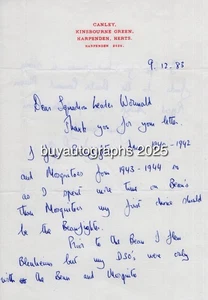 CANLEY,
KINSBOURNE GREEN,
HARPENDEN, HERTS.
HARPENDEN
9.12.83
Dear Squadron Leader
Thank you for your letter.
I 1942
buyautographs 2025
and Mosquitos from 1943-1944 so
as I spent more time on Beau's
than Mosquitos my first choice should
be the Beaufighter.
Prior to the Beau I flew
Blenheims but my DSO's were only
with the Beau and Mosquito